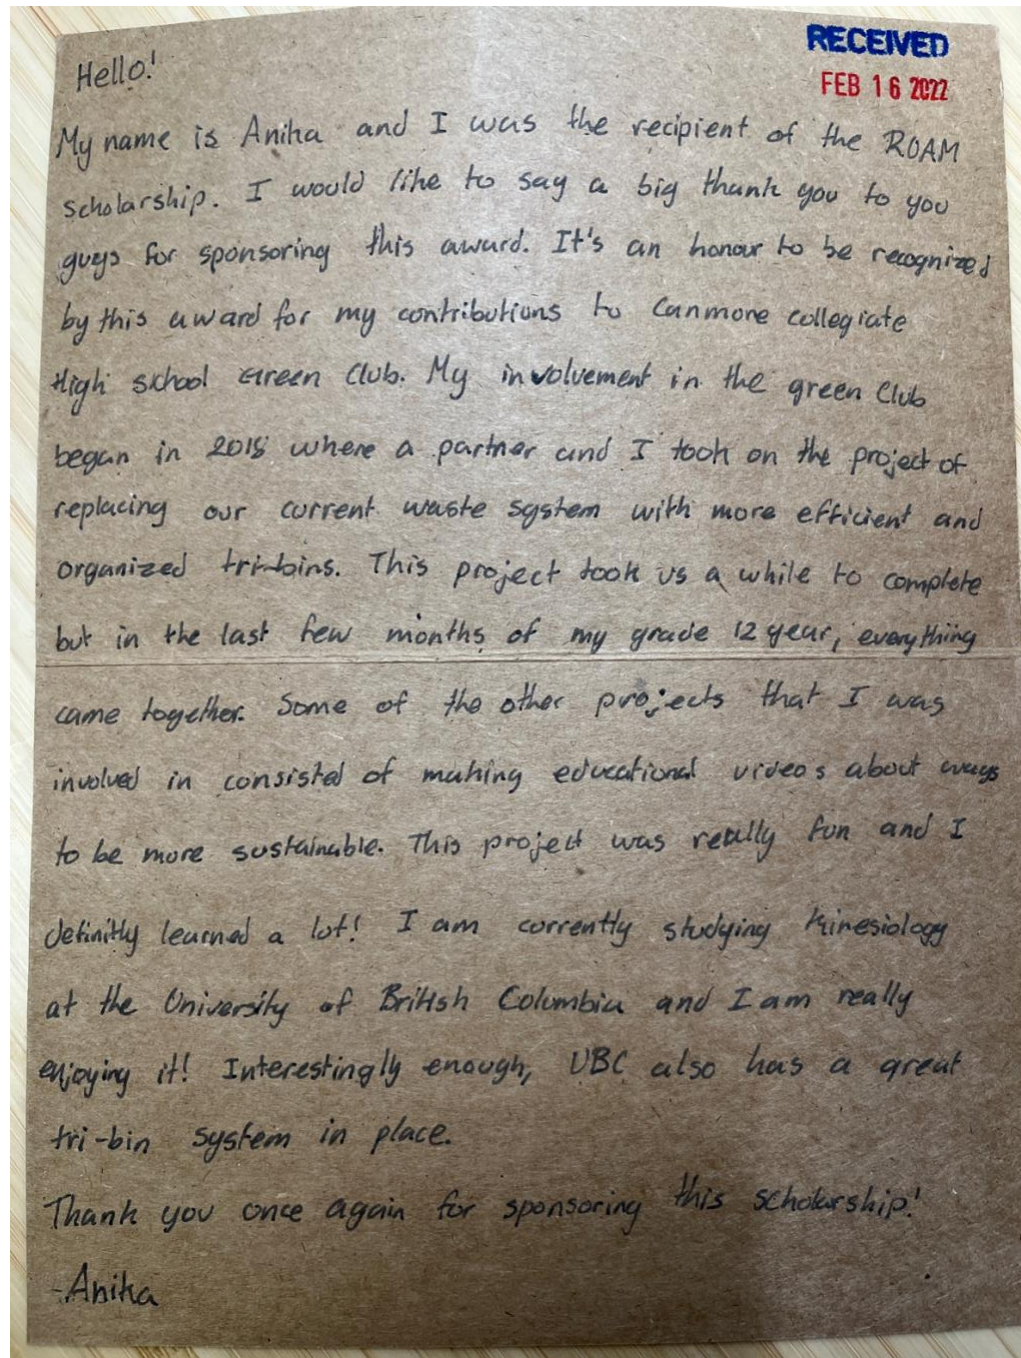 RECEIVED
FEB 16 2022
Hello!
My name is Anika and I was the recipient of the ROAM
scholarship. I would like to say a big thank you to you
guys for sponsoring this award. It's an honour to be recognized
by this award for my contributions to Canmore collegiate
High school Green Club. My involvement in the green Club
began in 2018 where a partner and I took on the project of
replacing our current waste system with more efficient and
organized tri-bins. This project took us a while to complete
but in the last few months of my grade 12 year, everything
came together. Some of the other projects that I was
involved in consisted of making educational videos about ways
to be more sustainable. This project was really fun and I
definitly learned a lot! I am currently studying Kinesiology
at the University of British Columbia and I am really
enjoying it! Interestingly enough, UBC also has a great
tri-bin system in place.
Thank you once again for sponsoring this scholarship!
-Anika